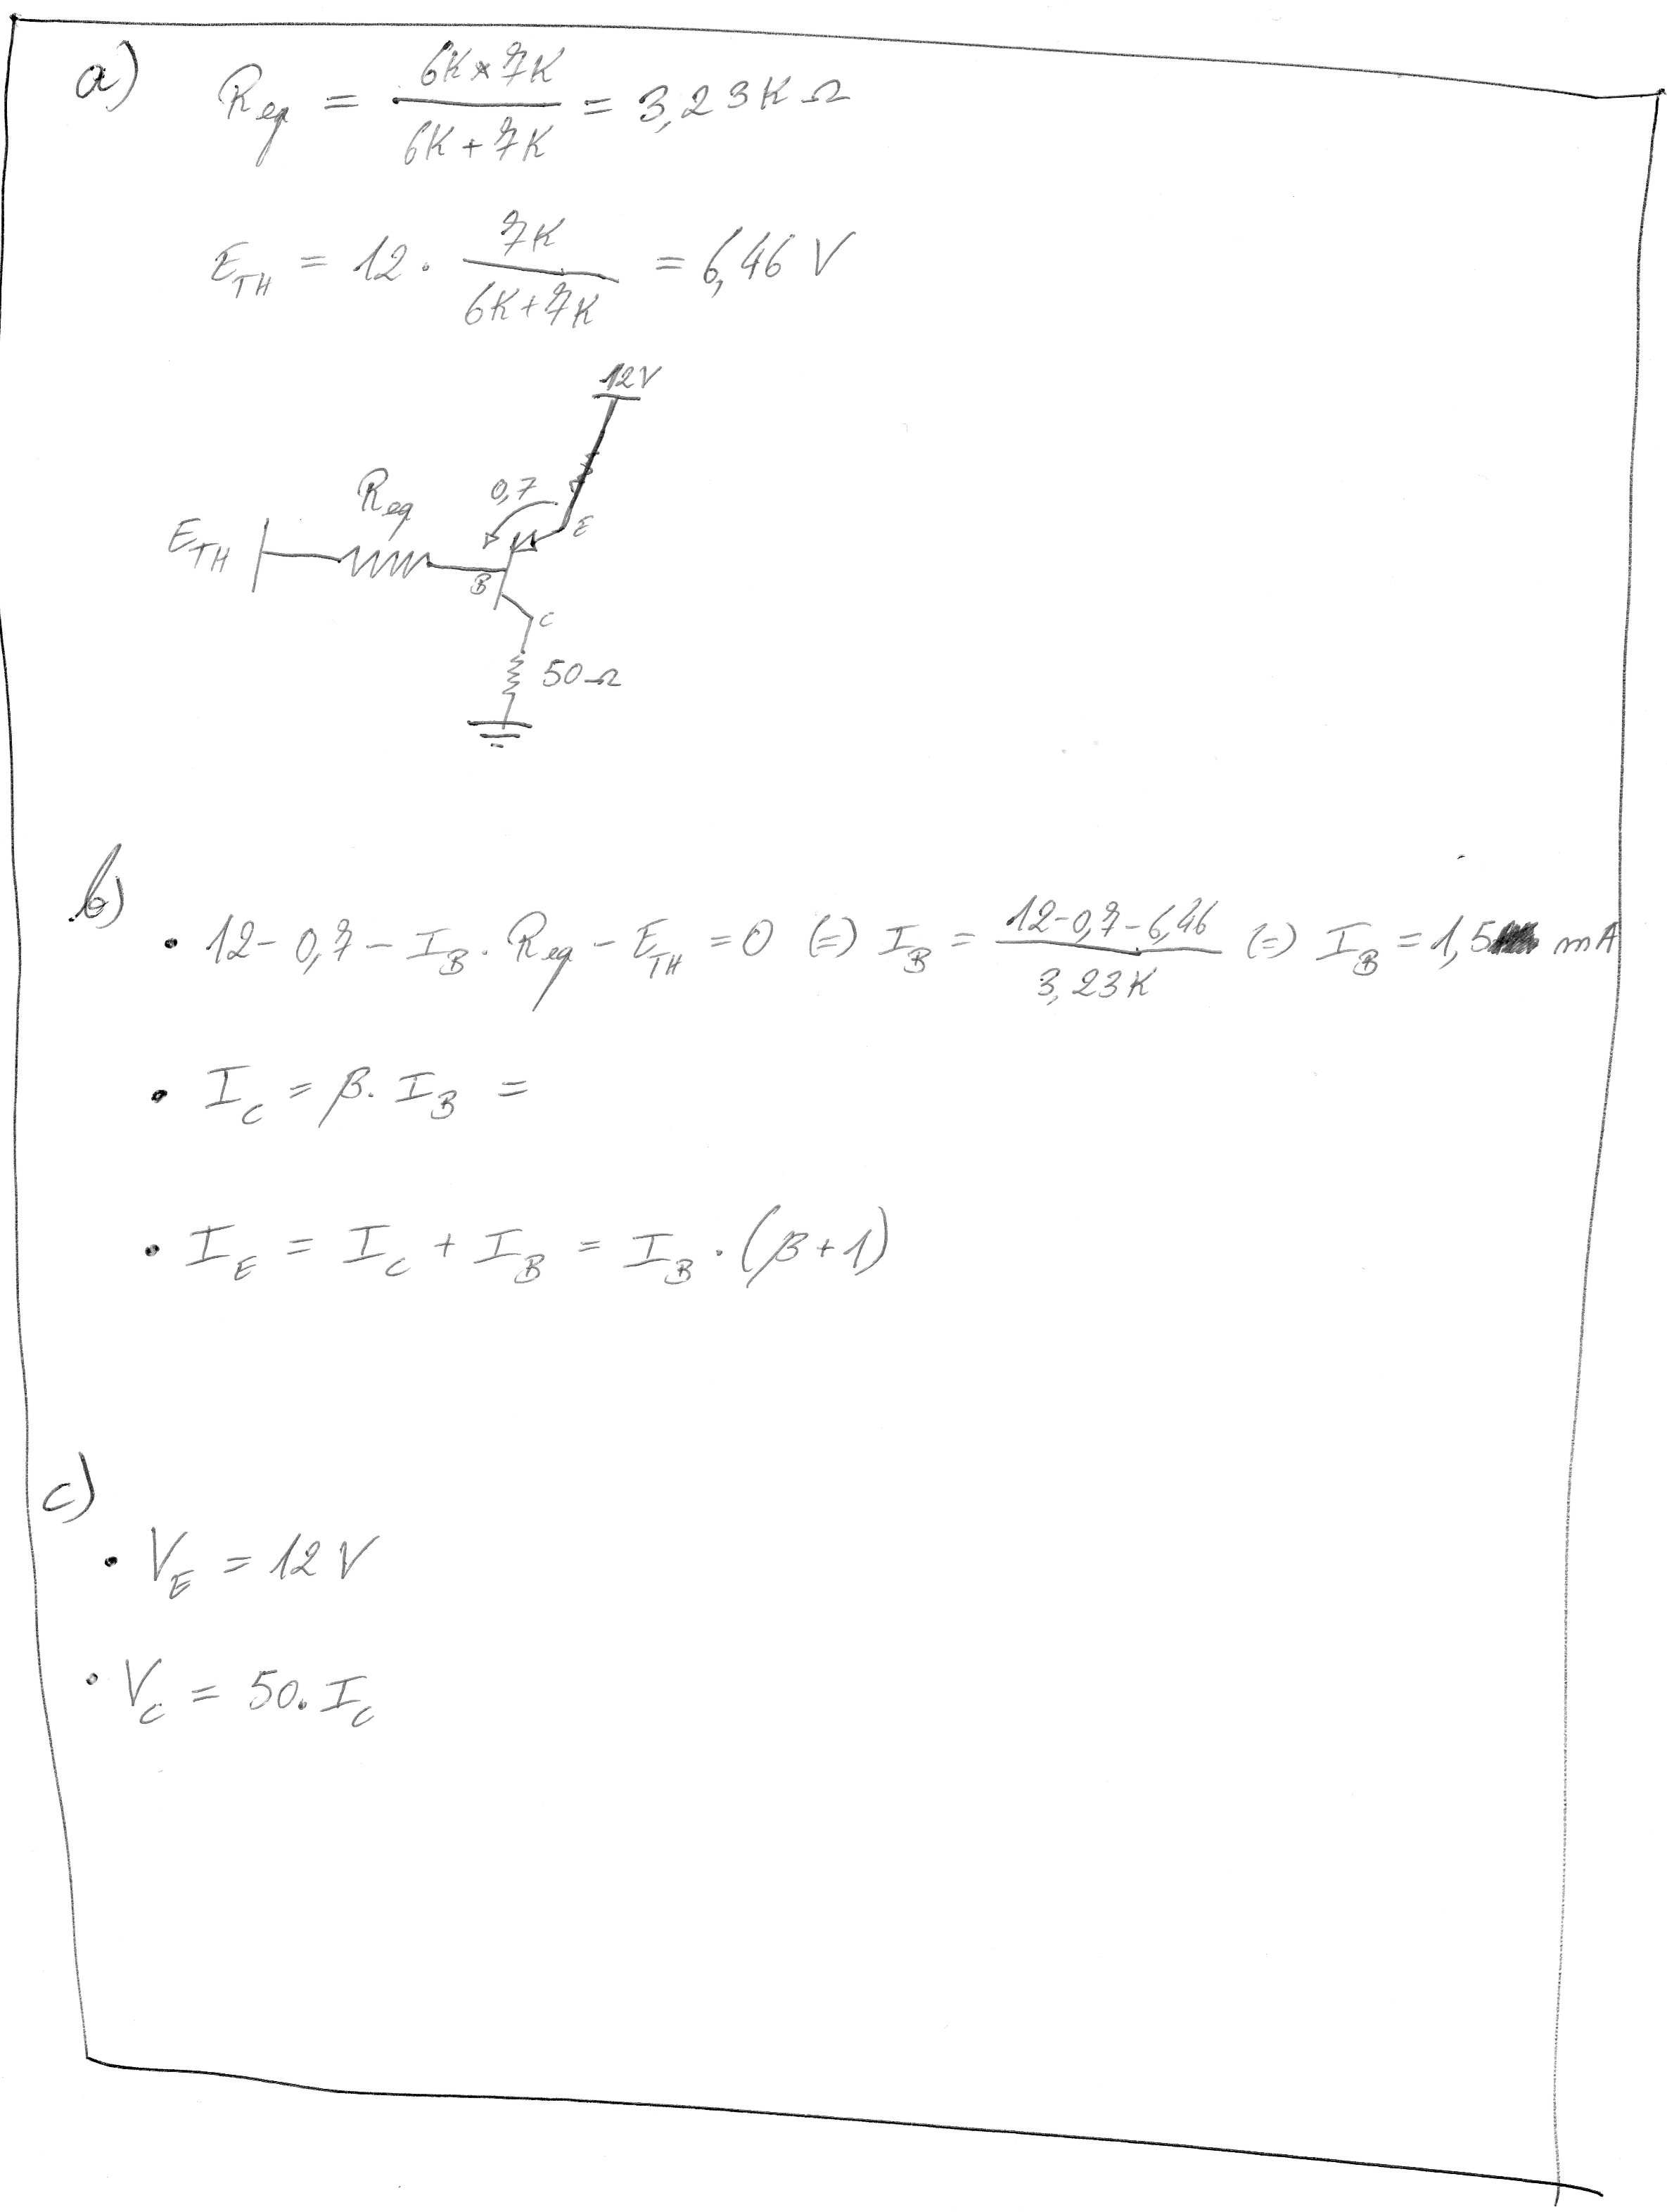 a) Req = 6K × 7K / 6K + 7K = 3,23 K Ω
E_TH = 12 · 7K / 6K + 7K = 6,46 V
12V
Req
0,7
E
E_TH
B
C
50 Ω
b)
• 12 - 0,7 - I_B · Req - E_TH = 0 (=) I_B = 12 - 0,7 - 6,46 / 3,23 K (=) I_B = 1,5 mA
• I_C = β · I_B =
• I_E = I_C + I_B = I_B · (β + 1)
c)
• V_E = 12 V
• V_C = 50 · I_C